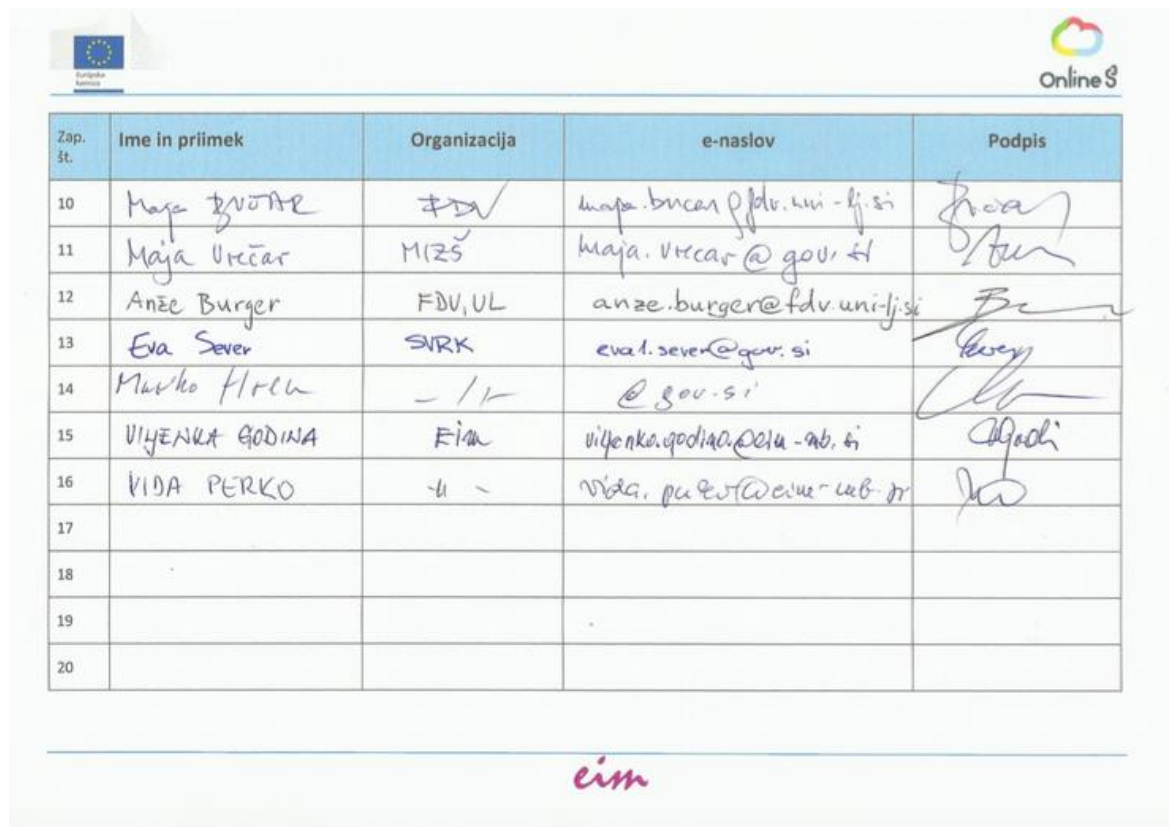 Evropska
komisija
Online S
Zap. št. Ime in priimek Organizacija e-naslov Podpis
10 Maja FDV
11 Maja Vrečar MIZŠ maja.vrecar@gov.si
12 Anže Burger FDV, UL anze.burger@fdv.uni-lj.si
13 Eva Sever SVRK eva1.sever@gov.si
14 Marko @gov.si
15 VILJENKA GODINA EIM viljenka.godina@eim-mb.si
16 VIDA PERKO -"-
17
18
19
20
eim